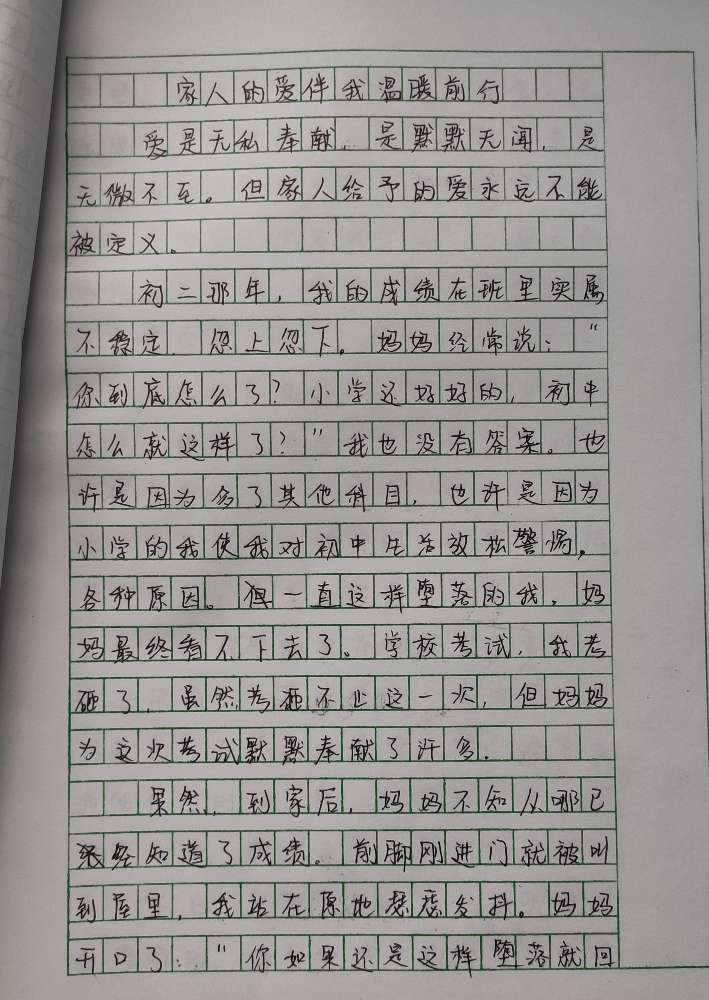 家人的爱伴我温暖前行
爱是无私奉献，是默默无闻，是
无微不至。但家人给予的爱永远不能
被定义。
初二那年，我的成绩在班里实属
不稳定，忽上忽下。妈妈经常说：“
你到底怎么了？小学还好好的，初中
怎么就这样了？”我也没有答案。也
许是因为多了其他科目，也许是因为
小学的我使我对初中生活放松警惕，
各种原因。但一直这样堕落的我，妈
妈最终看不下去了。学校考试，我考
砸了，虽然考砸不止这一次，但妈妈
为这次考试默默奉献了许多．
果然，到家后，妈妈不知从哪已
经知道了成绩。前脚刚进门就被叫
到屋里，我站在原地瑟瑟发抖。妈妈
开口了：“你如果还是这样堕落就回